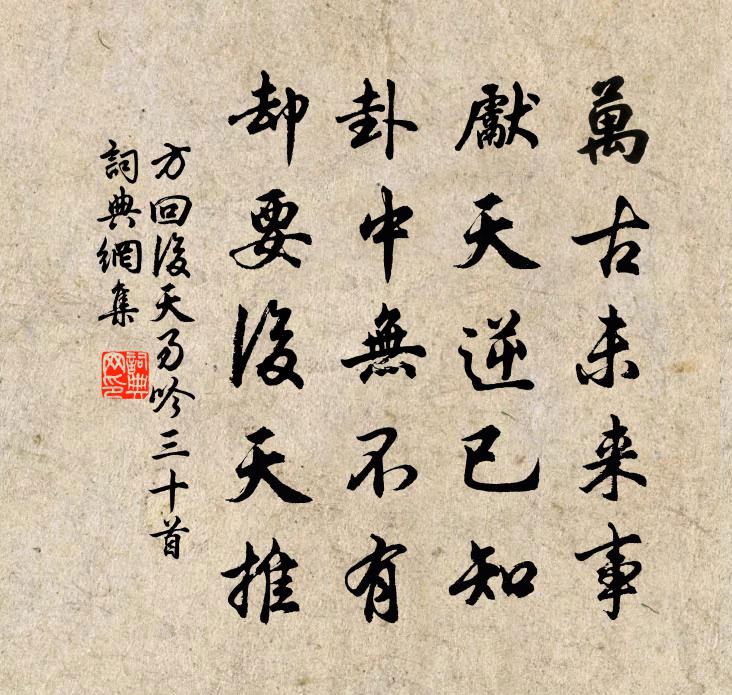 萬古未来事
獻天逆已知
卦中無不有
却要後天推
方回後天易吟三十首
詞典網集
詞典
网印